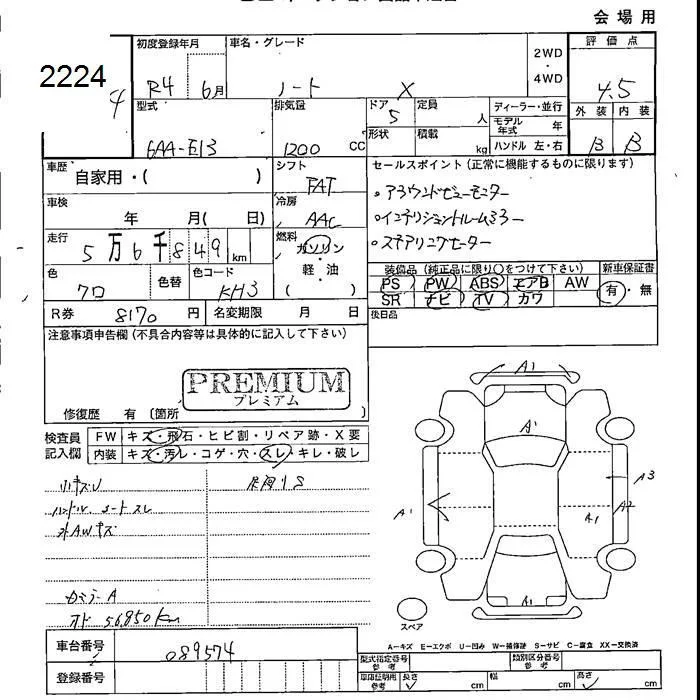 会場用
2224
4
初度登録年月
R4 6月
車名・グレード
ノート X
2WD
・
4WD
評価点
4.5
型式
6AA-E13
排気量
1200 CC
ドア
5
定員
人
形状
積載
kg
ディーラー・並行
モデル年式 年
ハンドル 左・右
外装 内装
B B
車歴
自家用・( )
シフト
FAT
セールスポイント (正常に機能するものに限ります)
・アラウンドビューモニター
・インテリジェントルームミラー
・ステアリングヒーター
車検
年 月( 日)
冷房
AAC
走行
5万6千849km
燃料
ガソリン
・
軽・油
( )
色
クロ
色替
色コード
KH3
装備品 (純正品に限り○をつけて下さい)
PS PW ABS エアB AW
SR ナビ TV カワ
新車保証書
有・無
R券 8170円
名変期限 月 日
後日品
注意事項申告欄 (不具合内容等は具体的に記入して下さい)
PREMIUM
プレミアム
修復歴 有 (箇所
検査員
記入欄
FW キズ・飛石・ヒビ割・リペア跡・X要
内装 キズ・汚レ・コゲ・穴・スレ・キレ・破レ
小キズU
ハンドル、シートスレ
外AWキズ
カメラ-A
オド 56850km
A1
A1
A1
A3
A2
A1
A1
スペア
A-キズ E-エクボ U-凹み W-補修跡 S-サビ C-腐食 XX-交換済
車台番号
089574
登録番号
型式指定番号
参考
類別区分番号
参考
車庫証明用
参考
長さ
cm
幅
cm
高さ
cm